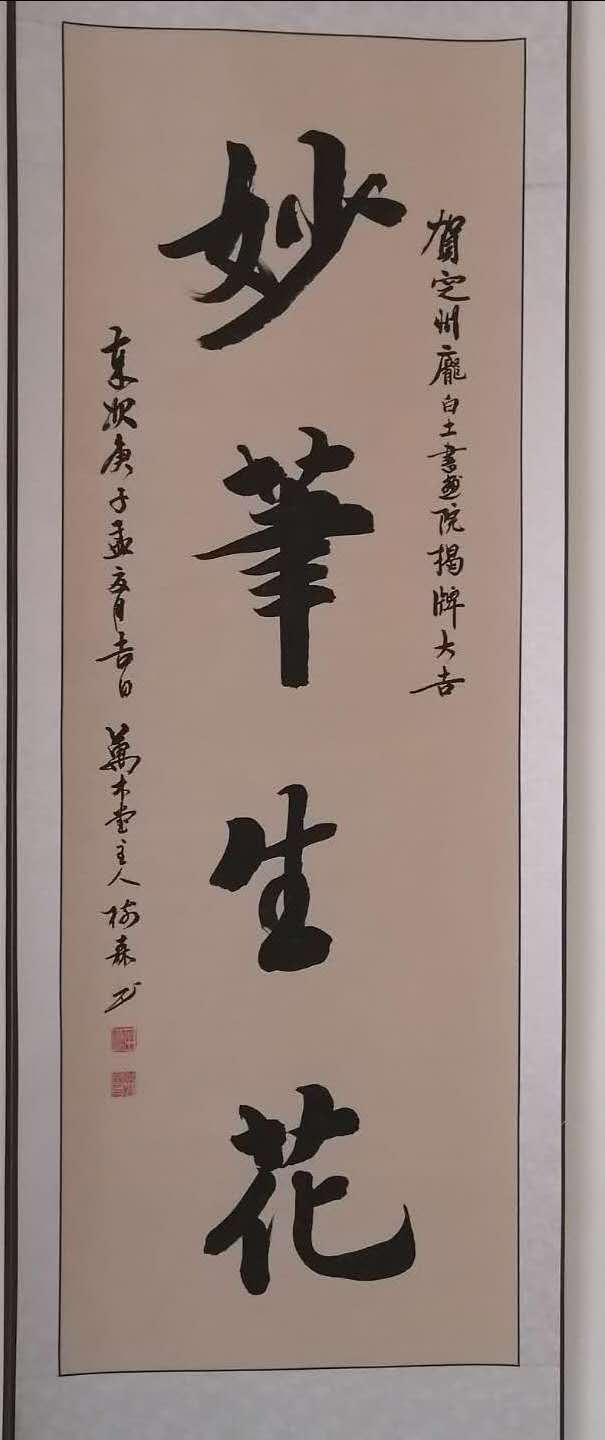 賀定州龐白土書畫院揭牌大吉
妙筆生花
庚子孟夏月吉日 萬木堂主人 森